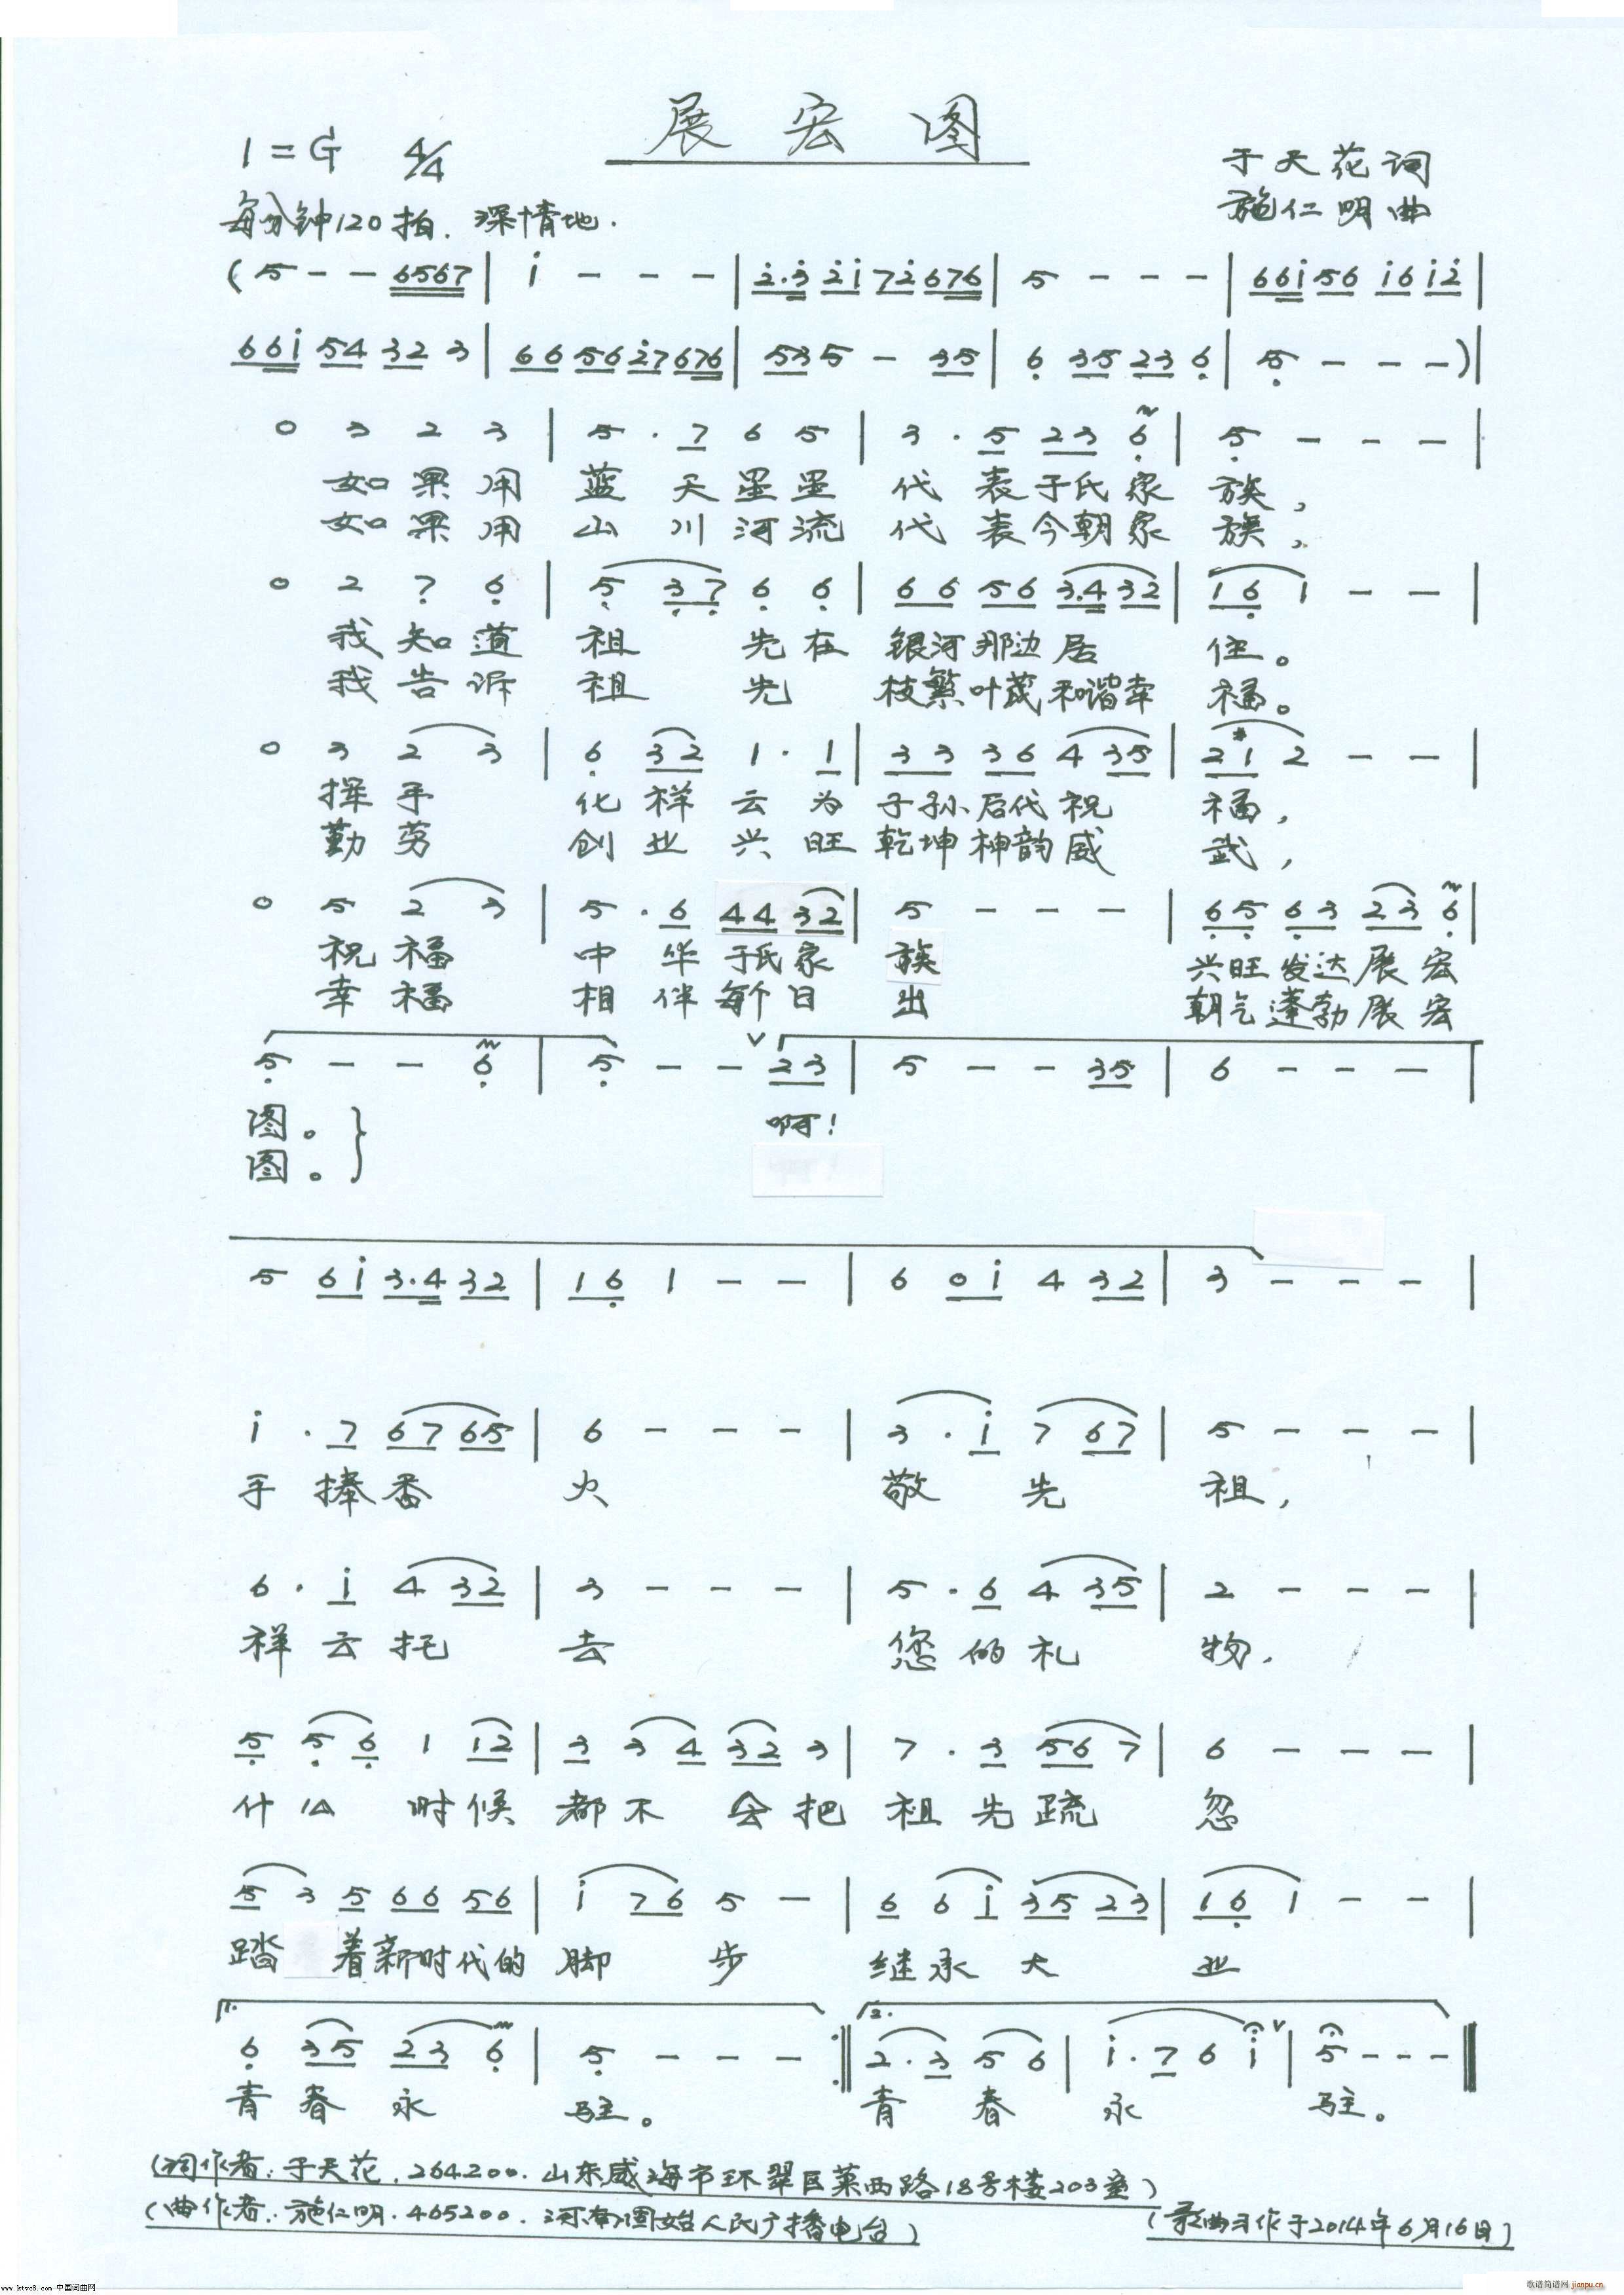 展宏图
1=G 4/4
于天花词
每分钟120拍.深情地.
施仁明曲
(5 - - 6567 | i - - - | 2.3 2i 72 676 | 5 - - - | 66i 56 i6 i2 |
66i 54 32 3 | 66 56 27 676 | 53 5 - 35 | 6 35 23 6 | 5 - - -) |
0 3 2 3 | 5 . 7 6 5 | 3 . 5 23 6 | 5 - - - |
如果用 蓝天星星 代表于氏家族,
如果用 山川河流 代表今朝家族,
0 2 7 6 | 5 37 6 6 | 66 56 3.4 32 | 16 1 - - |
我知道 祖先在 银河那边居住。
我告诉 祖先 枝繁叶茂和谐幸福。
0 3 2 3 | 6 32 1 . 1 | 33 36 4 35 | 2*1 2 - - |
挥手 化祥云为 子孙后代祝福,
勤劳 创业兴旺 乾坤神韵威武,
0 5 2 3 | 5 . 6 44 32 | 5 - - - | 65 63 23 6 |
祝福 中华于氏家族 兴旺发达展宏
幸福 相伴每个日出 朝气蓬勃展宏
5 - - 6 | 5 - - 23 | 5 - - 35 | 6 - - - |
图。 啊!
图。
5 6i 3.4 32 | 16 1 - - | 6 0i 4 32 | 3 - - - |
i . 7 67 65 | 6 - - - | 3 . i 7 67 | 5 - - - |
手捧香火 敬先祖,
6 . i 4 32 | 3 - - - | 5 . 6 4 35 | 2 - - - |
祥云托去 您的礼物.
5 5 6 1 12 | 3 3 4 32 3 | 7 . 3 56 7 | 6 - - - |
什么时候 都不会把 祖先疏忽
5 3 5 66 56 | i 76 5 - | 6 6 i 35 23 | 16 1 - - |
踏着新时代的脚步 继承大业
1. 6 35 23 6 | 5 - - - :‖ 2. 2.3 5 6 | i . 7 6 i | 5 - - - ‖
青春永驻。 青春永驻。
(词作者:于天花.264200.山东威海市环翠区莱西路18号楼203室)
(曲作者:施仁明.465200.河南固始人民广播电台)
(歌曲习作于2014年6月16日)
www.ktvc8.com-中国词曲网
歌谱简谱网 jianpu.cn